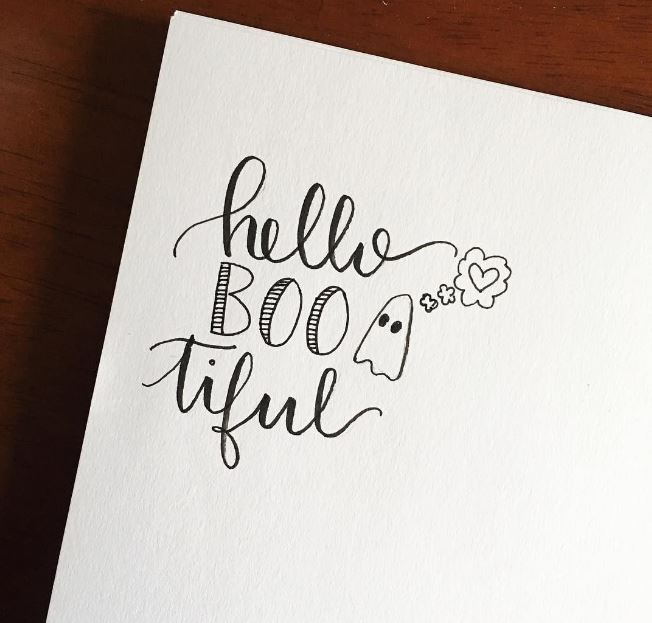 hello
BOO
tiful